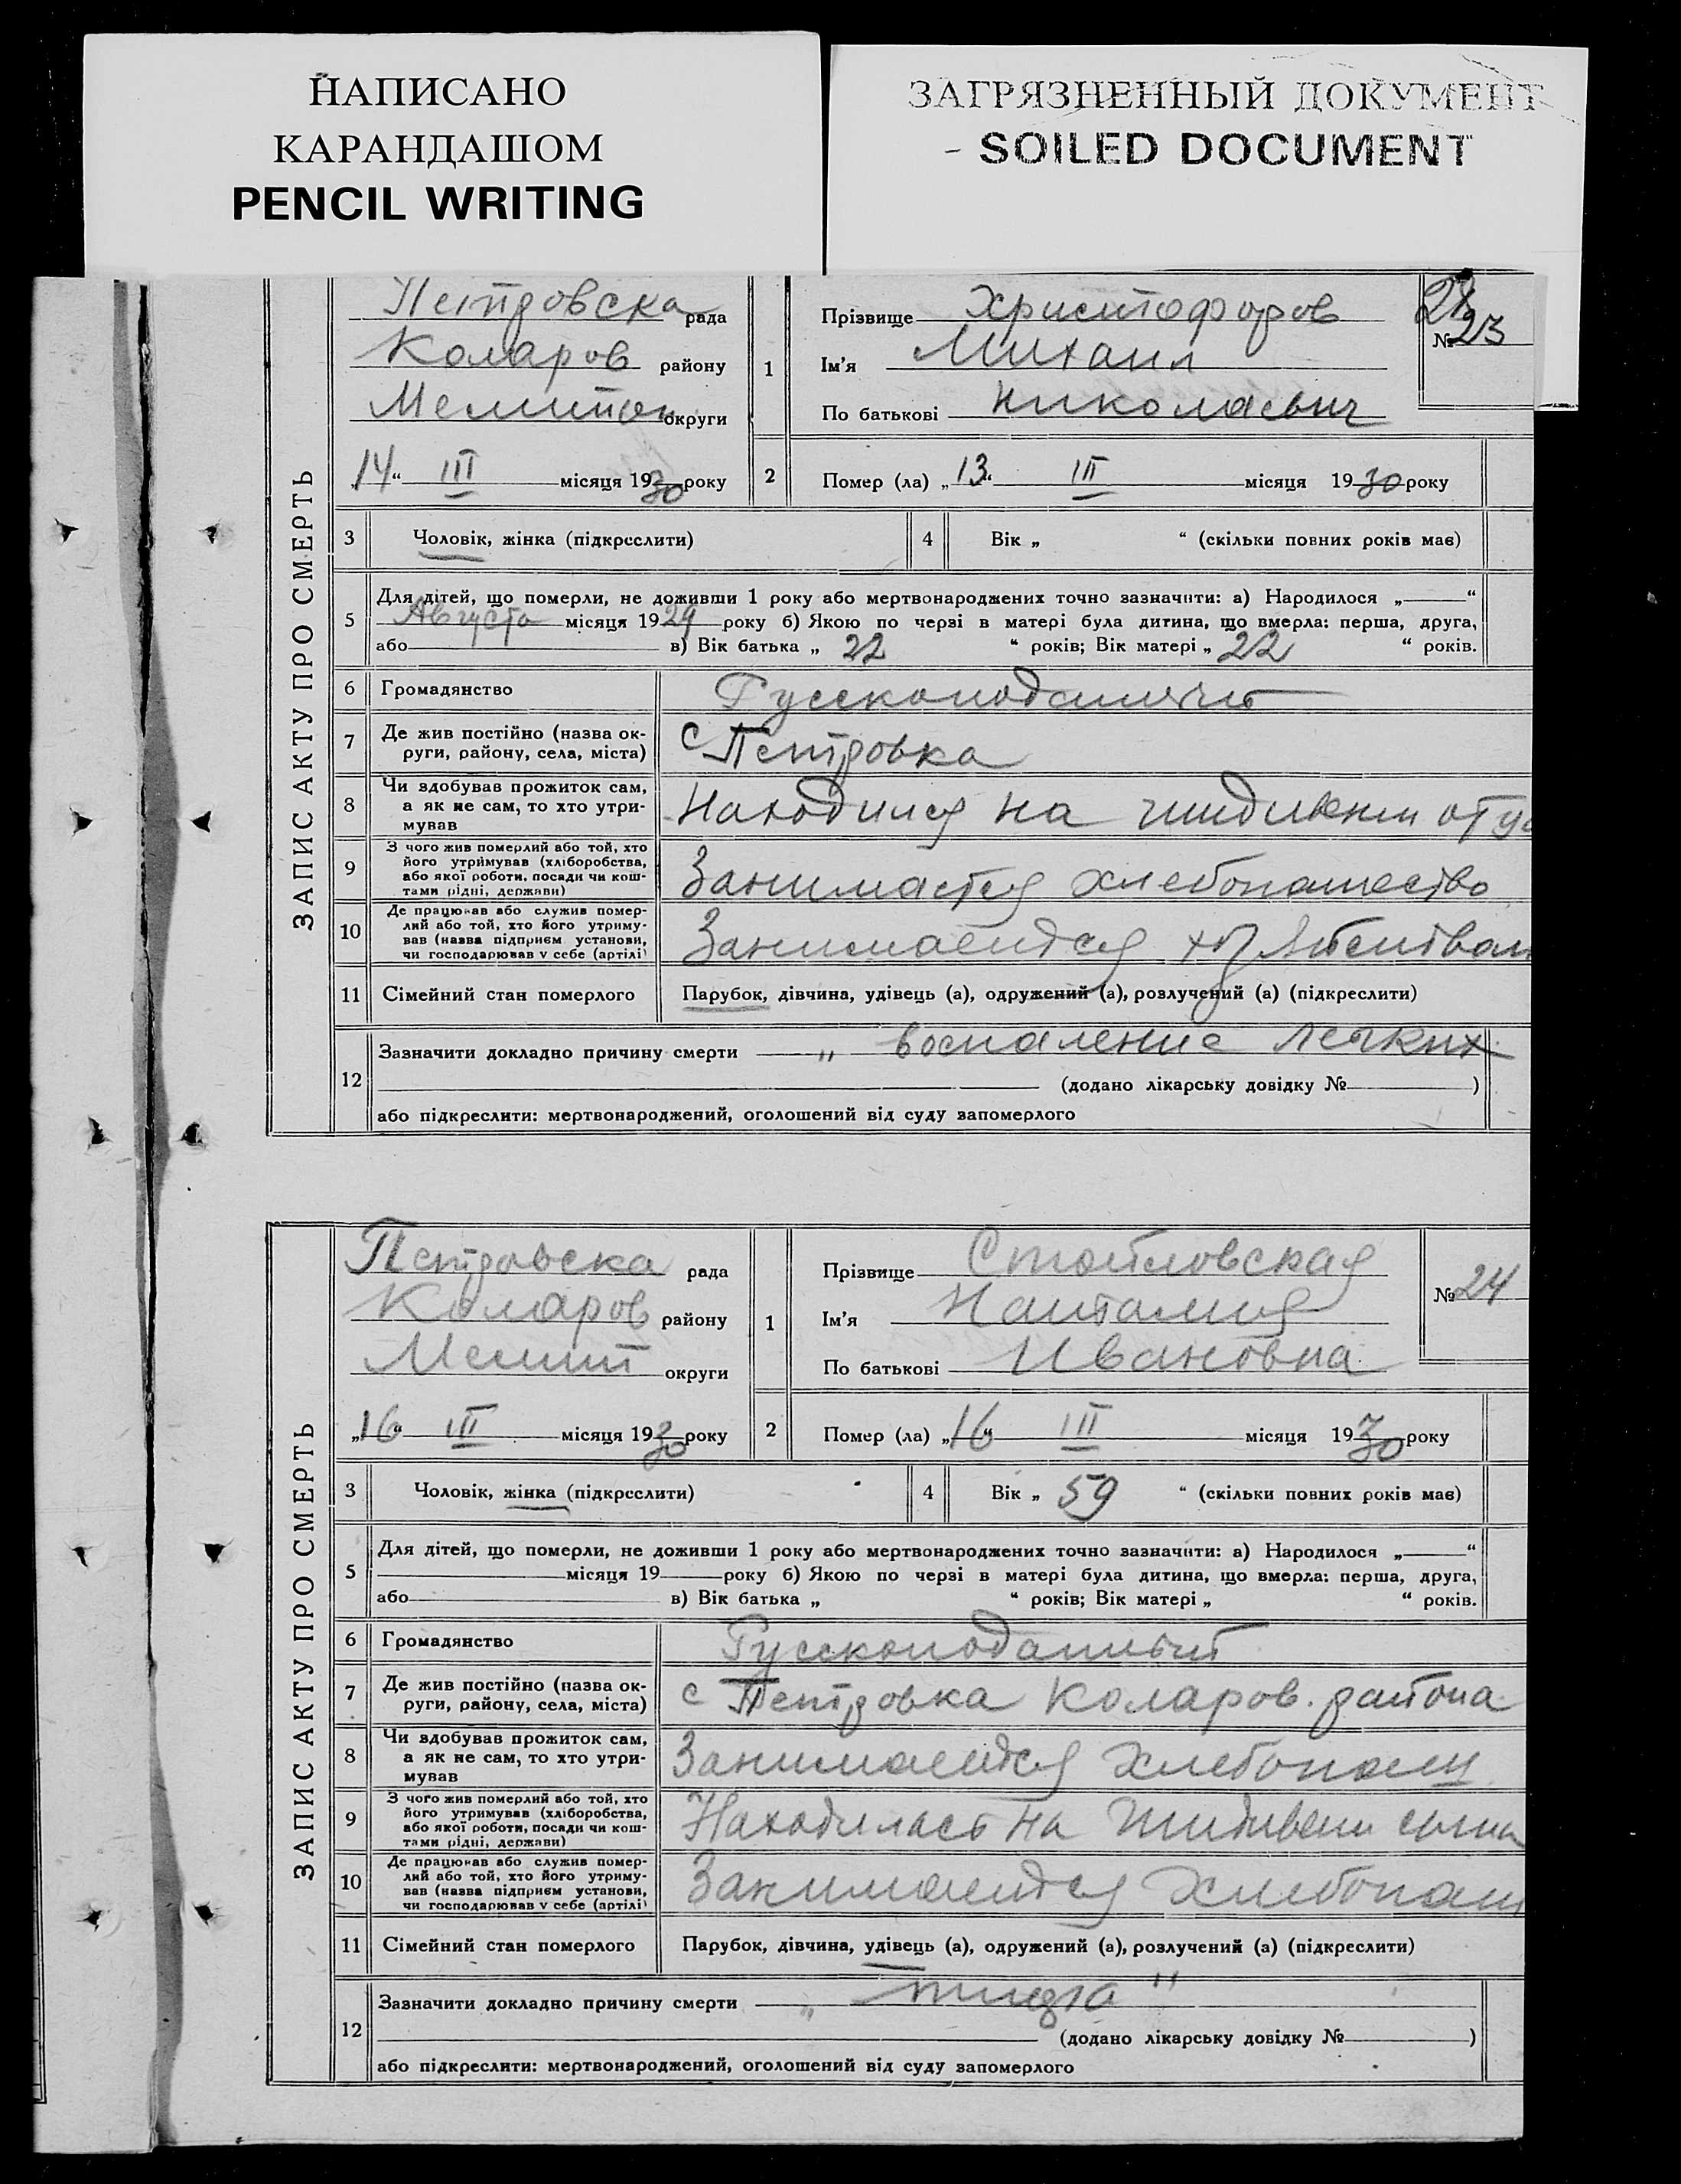 НАПИСАНО
КАРАНДАШОМ
PENCIL WRITING
ЗАГРЯЗНЕННЫЙ ДОКУМЕНТ
SOILED DOCUMENT
ЗАПИС АКТУ ПРО СМЕРТЬ
Петровска рада
Коларов району
Мелитоп округи
„14“ III місяця 1930 року
1
Прізвище Христофоров
Ім'я Михаил
По батькові Николаевич
№ 23
2
Помер (ла) „13“ III місяця 1930 року
3 Чоловік, жінка (підкреслити)
4 Вік „ “ (скільки повних років має)
5 Для дітей, що померли, не доживши 1 року або мертвонароджених точно зазначити: а) Народилося „ “
Августа місяця 1929 року б) Якою по черзі в матері була дитина, що вмерла: перша, друга,
або в) Вік батька „ 22 “ років; Вік матері „ 22 “ років.
6 Громадянство
7 Де жив постійно (назва ок-
руги, району, села, міста)
с Петровка
8 Чи здобував прожиток сам,
а як не сам, то хто утри-
мував
Находился на
9 З чого жив померлий або той, хто
його утримував (хліборобства,
або якої роботи, посади чи кош-
тами рідні, держави)
Занимается хлебопашество
10 Де працював або служив помер-
лий або той, хто його утриму-
вав (назва підприєм установи,
чи господарював у себе (артілі)
Занимается
11 Сімейний стан померлого
Парубок, дівчина, удівець (а), одружений (а), розлучений (а) (підкреслити)
12 Зазначити докладно причину смерти „ воспаление легких
(додано лікарську довідку № )
або підкреслити: мертвонароджений, оголошений від суду запомерлого
ЗАПИС АКТУ ПРО СМЕРТЬ
Петровска рада
Коларов району
Мелит округи
„16“ III місяця 1930 року
1
Прізвище Стойловская
Ім'я Наталия
По батькові Ивановна
№ 24
2
Помер (ла) „16“ III місяця 1930 року
3 Чоловік, жінка (підкреслити)
4 Вік „ 59 “ (скільки повних років має)
5 Для дітей, що померли, не доживши 1 року або мертвонароджених точно зазначити: а) Народилося „ “
місяця 19 року б) Якою по черзі в матері була дитина, що вмерла: перша, друга,
або в) Вік батька „ “ років; Вік матері „ “ років.
6 Громадянство
7 Де жив постійно (назва ок-
руги, району, села, міста)
с Петровка Коларов. района
8 Чи здобував прожиток сам,
а як не сам, то хто утри-
мував
Занимается хлебопаш
9 З чого жив померлий або той, хто
його утримував (хліборобства,
або якої роботи, посади чи кош-
тами рідні, держави)
Находилась на сына
10 Де працював або служив помер-
лий або той, хто його утриму-
вав (назва підприєм установи,
чи господарював у себе (артілі)
Занимается хлебопаш
11 Сімейний стан померлого
Парубок, дівчина, удівець (а), одружений (а), розлучений (а) (підкреслити)
12 Зазначити докладно причину смерти
(додано лікарську довідку № )
або підкреслити: мертвонароджений, оголошений від суду запомерлого